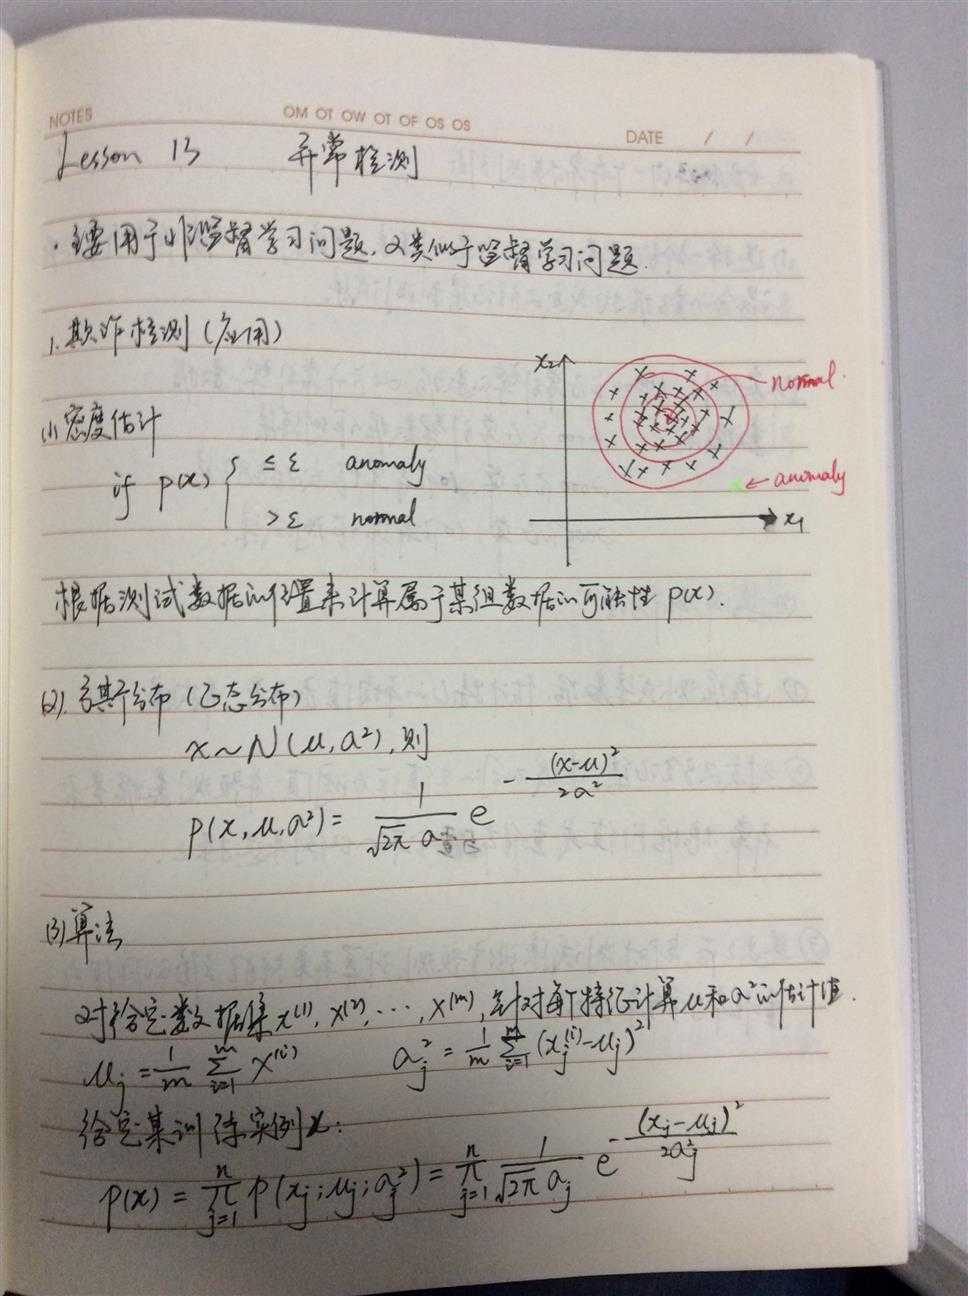 NOTES OM OT OW OT OF OS OS DATE / /
Lesson 13 异常检测
· 主要用于非监督学习问题，又类似于监督学习问题.
1. 欺诈检测（应用）
(1) 密度估计
if p(x) { ≤ ε anomaly
> ε normal
x₂
normal.
← anomaly
x₁
根据测试数据的位置来计算属于某组数据的可能性 p(x).
(2). 高斯分布（正态分布）
x ~ N(μ, a²), 则
p(x, μ, a²) = 1/(√2π a) e^(-(x-μ)²/2a²)
(3) 算法
对给定数据集 x⁽¹⁾, x⁽²⁾, ⋯, x⁽ᵐ⁾, 针对每个特征计算 μ 和 a² 的估计值.
μⱼ = 1/m ∑ᵢ₌₁ᵐ x⁽ⁱ⁾ aⱼ² = 1/m ∑ᵢ₌₁ᵐ (xⱼ⁽ⁱ⁾-μⱼ)²
给定某训练实例 x:
p(x) = πⱼ₌₁ⁿ p(xⱼ; μⱼ; aⱼ²) = πⱼ₌₁ⁿ 1/(√2π aⱼ) e^(-(xⱼ-μⱼ)²/2aⱼ²)